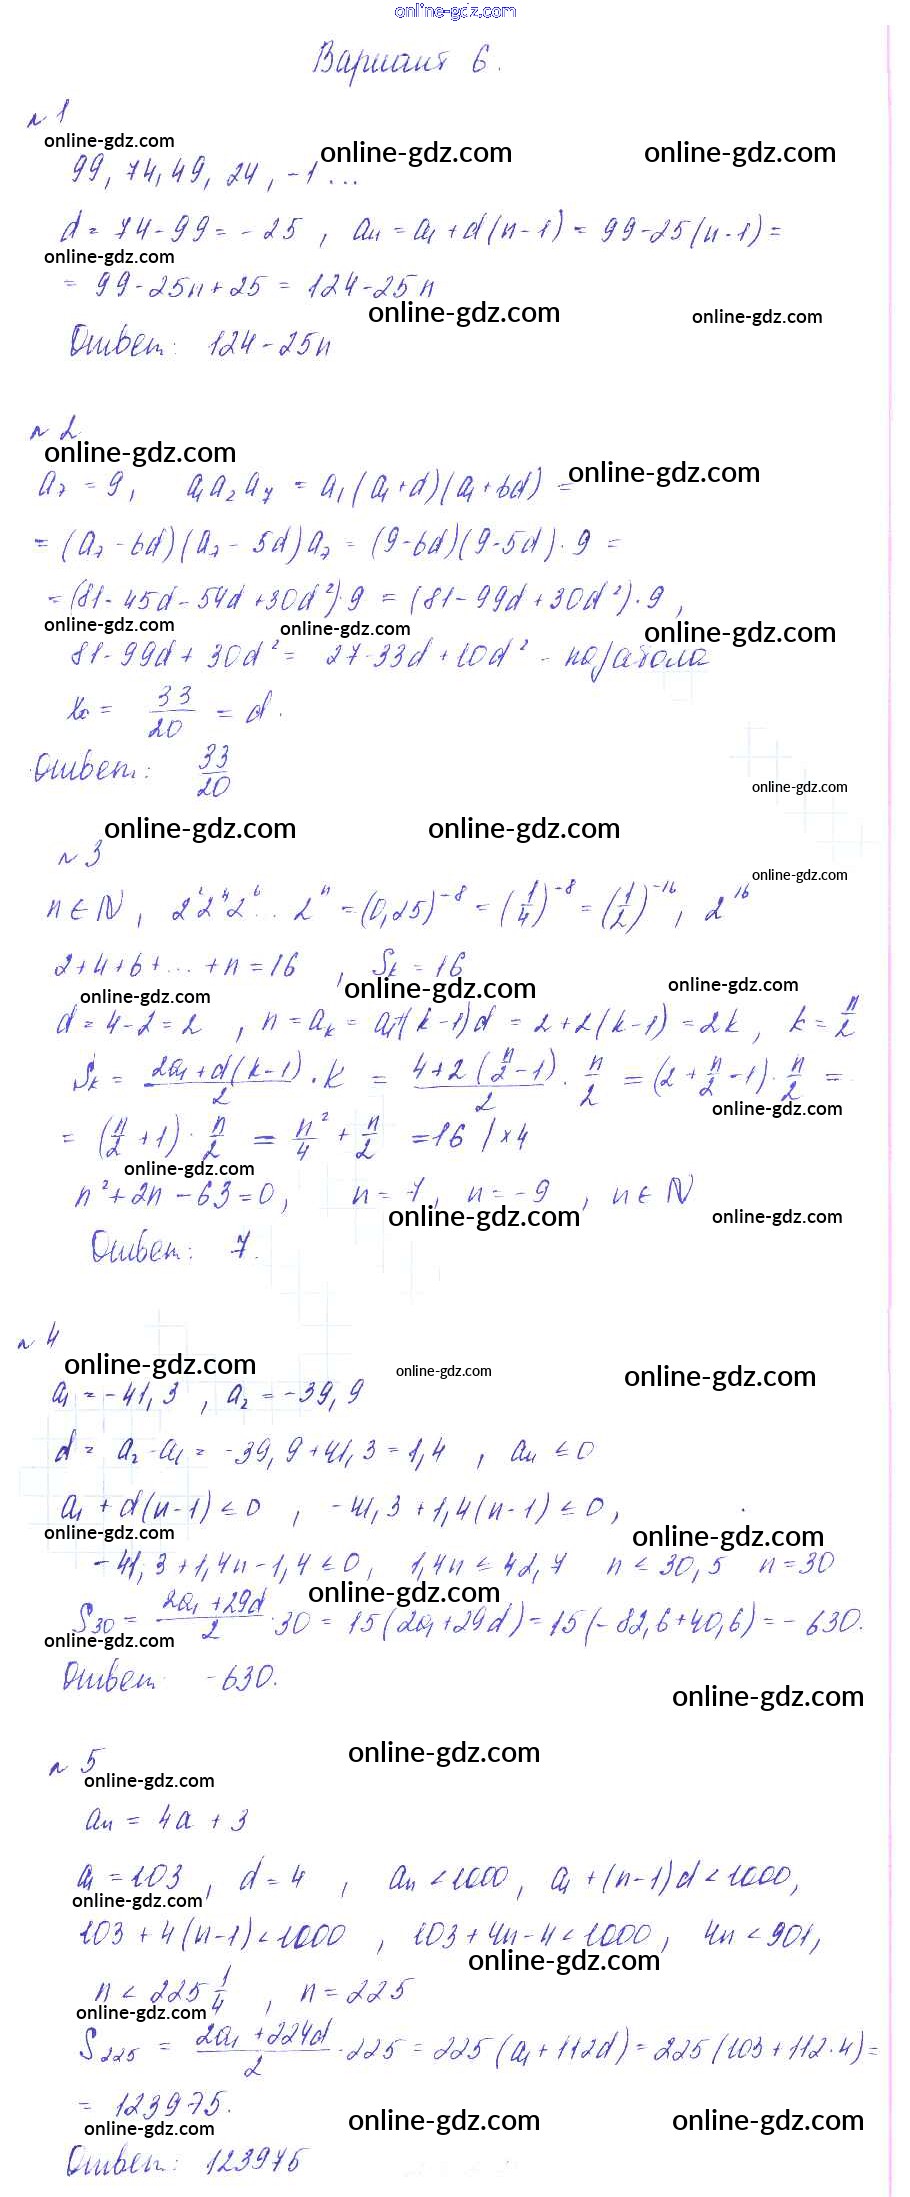 online-gdz.com
Вариант 6.
№1
online-gdz.com online-gdz.com online-gdz.com
99, 74, 49, 24, -1 ...
d = 74-99 = -25 , an = a1 + d(n-1) = 99-25(n-1) =
online-gdz.com
= 99-25n+25 = 124-25n
online-gdz.com online-gdz.com
Ответ: 124-25n
№2
online-gdz.com online-gdz.com
a7 = 9, a1 a2 a7 = a1(a1+d)(a1+6d) =
= (a7-6d)(a7-5d)a7 = (9-6d)(9-5d)·9 =
= (81-45d-54d+30d²)·9 = (81-99d+30d²)·9,
online-gdz.com online-gdz.com online-gdz.com
81-99d+30d² = 27-33d+10d² - парабола
x0 = 33/20 = d.
Ответ: 33/20
online-gdz.com
online-gdz.com online-gdz.com
№3
online-gdz.com
n∈N, 2² 2⁴ 2⁶ ... 2ⁿ = (0,25)⁻⁸ = (1/4)⁻⁸ = (1/2)⁻¹⁶, 2¹⁶
2+4+6+...+n=16 , Sk = 16
online-gdz.com online-gdz.com online-gdz.com
d=4-2=2 , n=ak = a1+(k-1)d = 2+2(k-1) = 2k, k = n/2
Sk = (2a1+d(k-1))/2 · k = (4+2(n/2-1))/2 · n/2 = (2+n/2-1)·n/2 =
online-gdz.com
= (n/2+1)·n/2 = n²/4 + n/2 =16 |×4
online-gdz.com
n²+2n-63=0, n=7, n=-9, n∈N
online-gdz.com online-gdz.com
Ответ: 7.
№4
online-gdz.com online-gdz.com online-gdz.com
a1 = -41,3 , a2 = -39,9
d = a2-a1 = -39,9+41,3=1,4 , an ≤ 0
a1 + d(n-1) ≤ 0 , -41,3+1,4(n-1) ≤ 0,
online-gdz.com online-gdz.com
-41,3+1,4n-1,4 ≤ 0, 1,4n ≤ 42,7 n ≤ 30,5 n=30
online-gdz.com
S30 = (2a1+29d)/2 · 30 = 15(2a1+29d) = 15(-82,6+40,6) = -630.
online-gdz.com
Ответ -630.
online-gdz.com
online-gdz.com
№5
online-gdz.com
an = 4a + 3
a1 = 103, d=4 , an < 1000, a1+(n-1)d < 1000,
online-gdz.com
103+4(n-1) < 1000 , 103+4n-4 < 1000, 4n < 901,
online-gdz.com
n < 225 1/4 , n = 225
online-gdz.com
S225 = (2a1+224d)/2 · 225 = 225(a1+112d) = 225(103+112·4) =
= 123975.
online-gdz.com online-gdz.com online-gdz.com
Ответ: 123975